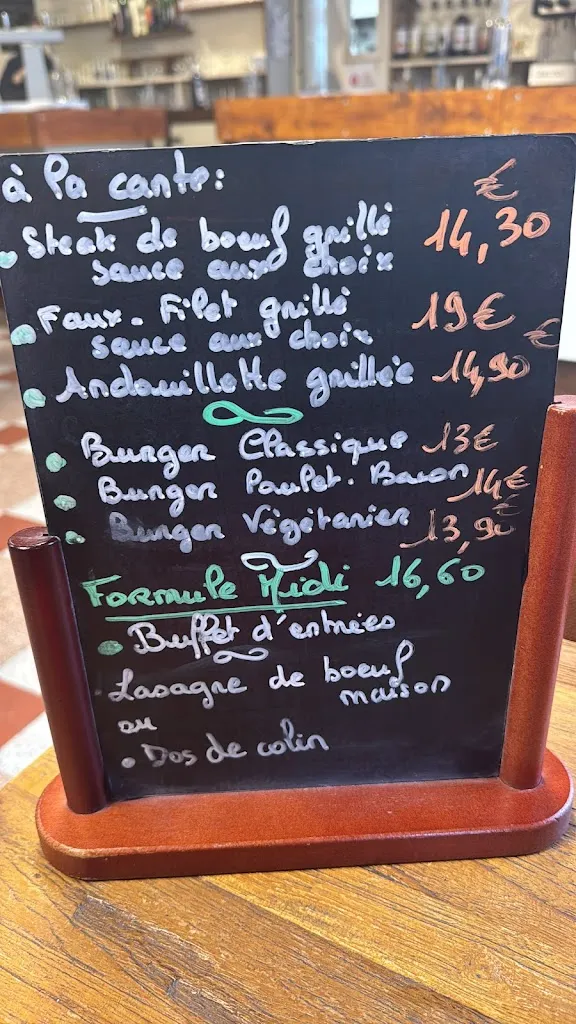 à la carte:
€
Steak de boeuf grillé 14,30
sauce aux choix
Faux-Filet grillé 19€
sauce aux choix
€
Andouillette grillée 14,90
Burger Classique 13€
Burger Poulet-Bacon 14€
€
Burger Végétarien 13,90
Formule Midi 16,60
Buffet d'entrées
Lasagne de boeuf
maison
ou
Dos de colin